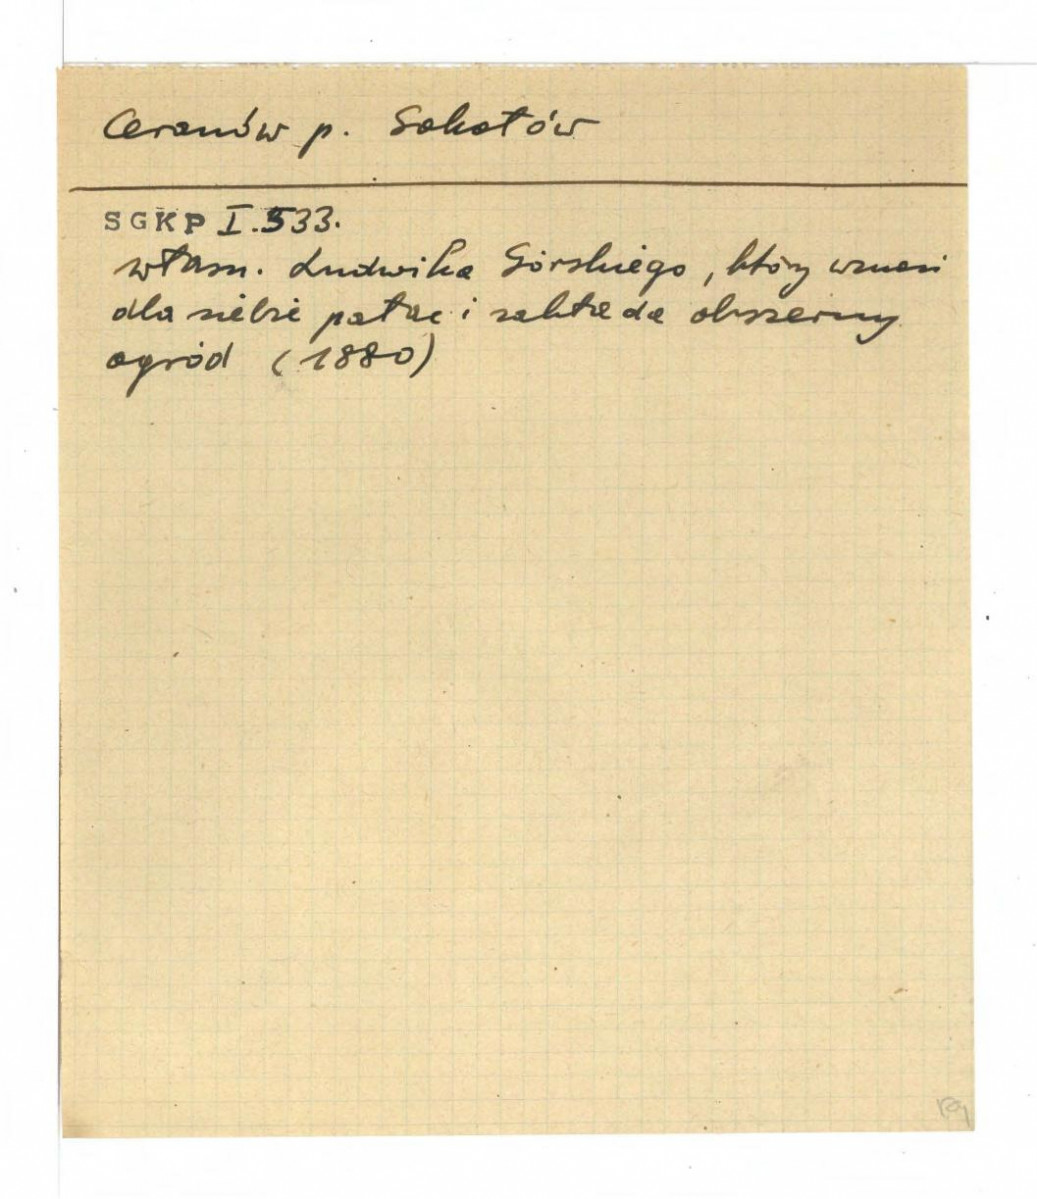 Ceranów p. Sokołów
SGKP I.533.
własn. Ludwika Górskiego, który wznosi
dla siebie pałac i zakłada obszerny
ogród (1880)